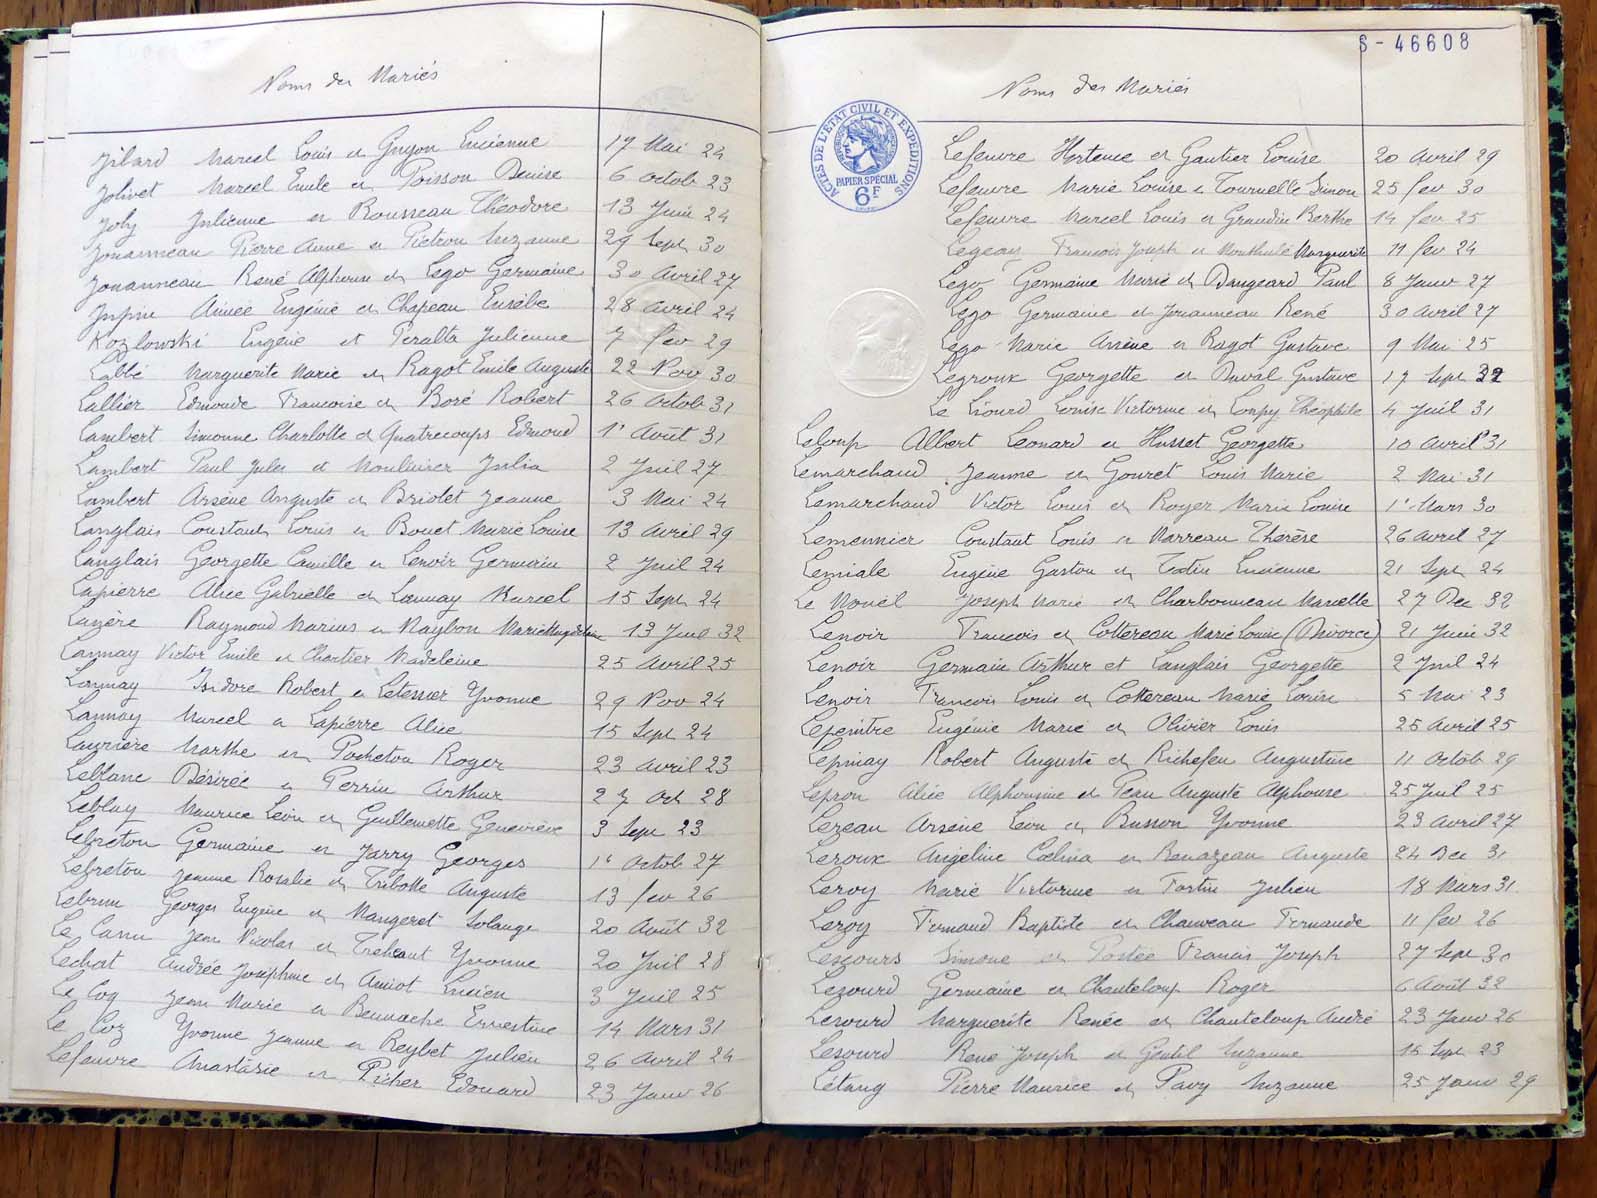 Noms des Mariés
Jilard Marcel Louis et Guyon Lucienne 17 Mai 24
Jolivet Marcel Emile et Poisson Denise 6 Octob 23
Joly Julienne et Rousseau Théodore 13 Juin 24
Jouanneau Pierre Anne et Pietron Suzanne 29 Sept 30
Jouanneau René Alphonse et Lego Germaine 30 Avril 27
Jupin Aimée Eugénie et Chapeau Eusèbe 28 Avril 24
Kozlowski Eugène et Peralta Julienne 7 fev 29
Labbé Marguerite Marie et Ragot Emile Auguste 22 Nov 30
Lallier Edmonde Francoise et Boré Robert 26 Octob 31
Lambert Simonne Charlotte et Quatrecoups Edmond 1r Août 31
Lambert Paul Jules et Moulinier Julia 2 Juil 27
Lambert Arsène Auguste et Briolet Jeanne 3 Mai 24
Langlais Constant Louis et Bouet Marie Louise 13 Avril 29
Langlais Georgette Camille et Lenoir Germain 2 Juil 24
Lapierre Alice Gabrielle et Launay Marcel 15 Sept 24
Raymond Marius et Maybon Marie Magdeleine 13 Juil 32
Launay Victor Emile et Chartier Madeleine 25 Avril 25
Launay Isidore Robert et Letessier Yvonne 29 Nov 24
Launay Marcel et Lapierre Alice 15 Sept 24
Laurière Marthe et Pocheton Roger 23 Avril 23
Leblanc Désirée et Perrin Arthur 27 Oct 28
Leblay Maurice Léon et Guillemette Geneviève 3 Sept 23
Lebreton Germaine et Jarry Georges 1r Octob 27
Lebreton Jeanne Rosalie et Tribotté Auguste 13 fev 26
Lebrun Georges Eugène et Mangeret Solange 20 Août 32
Le Canu Jean Nicolas et Trehaut Yvonne 20 Juil 28
Lechat Andrée Joséphine et Amiot Lucien 3 Juil 25
Le Coq Jean Marie et Beunache Ernestine 14 Mars 31
Le Coz Yvonne Jeanne et Reybet Julien 26 Avril 24
Lefeuvre Anastasie et Picher Edouard 23 Janv 26
S-46608
Noms des Mariés
ACTES DE L'ETAT CIVIL ET EXPEDITIONS
PAPIER SPECIAL
6F
Lefeuvre Hortense et Gautier Louise 20 Avril 29
Lefeuvre Marie Louise et Tournelle Simon 25 fev 30
Lefeuvre Marcel Louis et Grandin Berthe 14 fev 25
Legeay Francois Joseph et Monthulé Marguerite 11 fev 24
Lego Germaine Marie et Dangeard Paul 8 Janv 27
Lego Germaine et Jouanneau René 30 Avril 27
Lego Marie Arsène et Ragot Gustave 9 Mai 25
Legroux Georgette et Duval Gustave 17 Sept 32
Le Liourd Louise Victorine et Loupy Théophile 4 Juil 31
Leloup Albert Leonard et Husset Georgette 10 Avril 31
Lemarchand Jeanne et Gouret Louis Marie 2 Mai 31
Lemarchand Victor Louis et Royer Marie Louise 1r Mars 30
Lemennier Constant Louis et Marreau Thérèse 26 Avril 27
Lemiale Eugène Gaston et Totin Lucienne 21 Sept 24
Le Mouël Joseph Marie et Charbonneau Marcelle 27 Dec 32
Lenoir Francois et Cottereau Marie Louise (Divorce) 21 Juin 32
Lenoir Germain Arthur et Langlais Georgette 2 Juil 24
Lenoir Francois Louis et Cottereau Marie Louise 5 Mai 23
Lepeintre Eugénie Marie et Olivier Louis 25 Avril 25
Lepinay Robert Auguste et Richefeu Augustine 11 Octob 29
Lepron Alice Alphonsine et Peau Auguste Alphonse 25 Juil 25
Lereau Arsène Leon et Busson Yvonne 23 Avril 27
Leroux Angéline Coelina et Renazeau Auguste 24 Dec 31
Leroy Marie Victorine et Fortin Julien 18 Mars 31
Leroy Fernand Baptiste et Chauveau Fernande 11 fev 26
Lescours Simone et Postée Francis Joseph 27 Sept 30
Lesourd Germaine et Chanteloup Roger 6 Août 32
Lesourd Marguerite Renée et Chanteloup André 23 Janv 26
Lesourd René Joseph et Gentil Suzanne 15 Sept 23
Létang Pierre Maurice et Pavy Suzanne 25 Janv 29